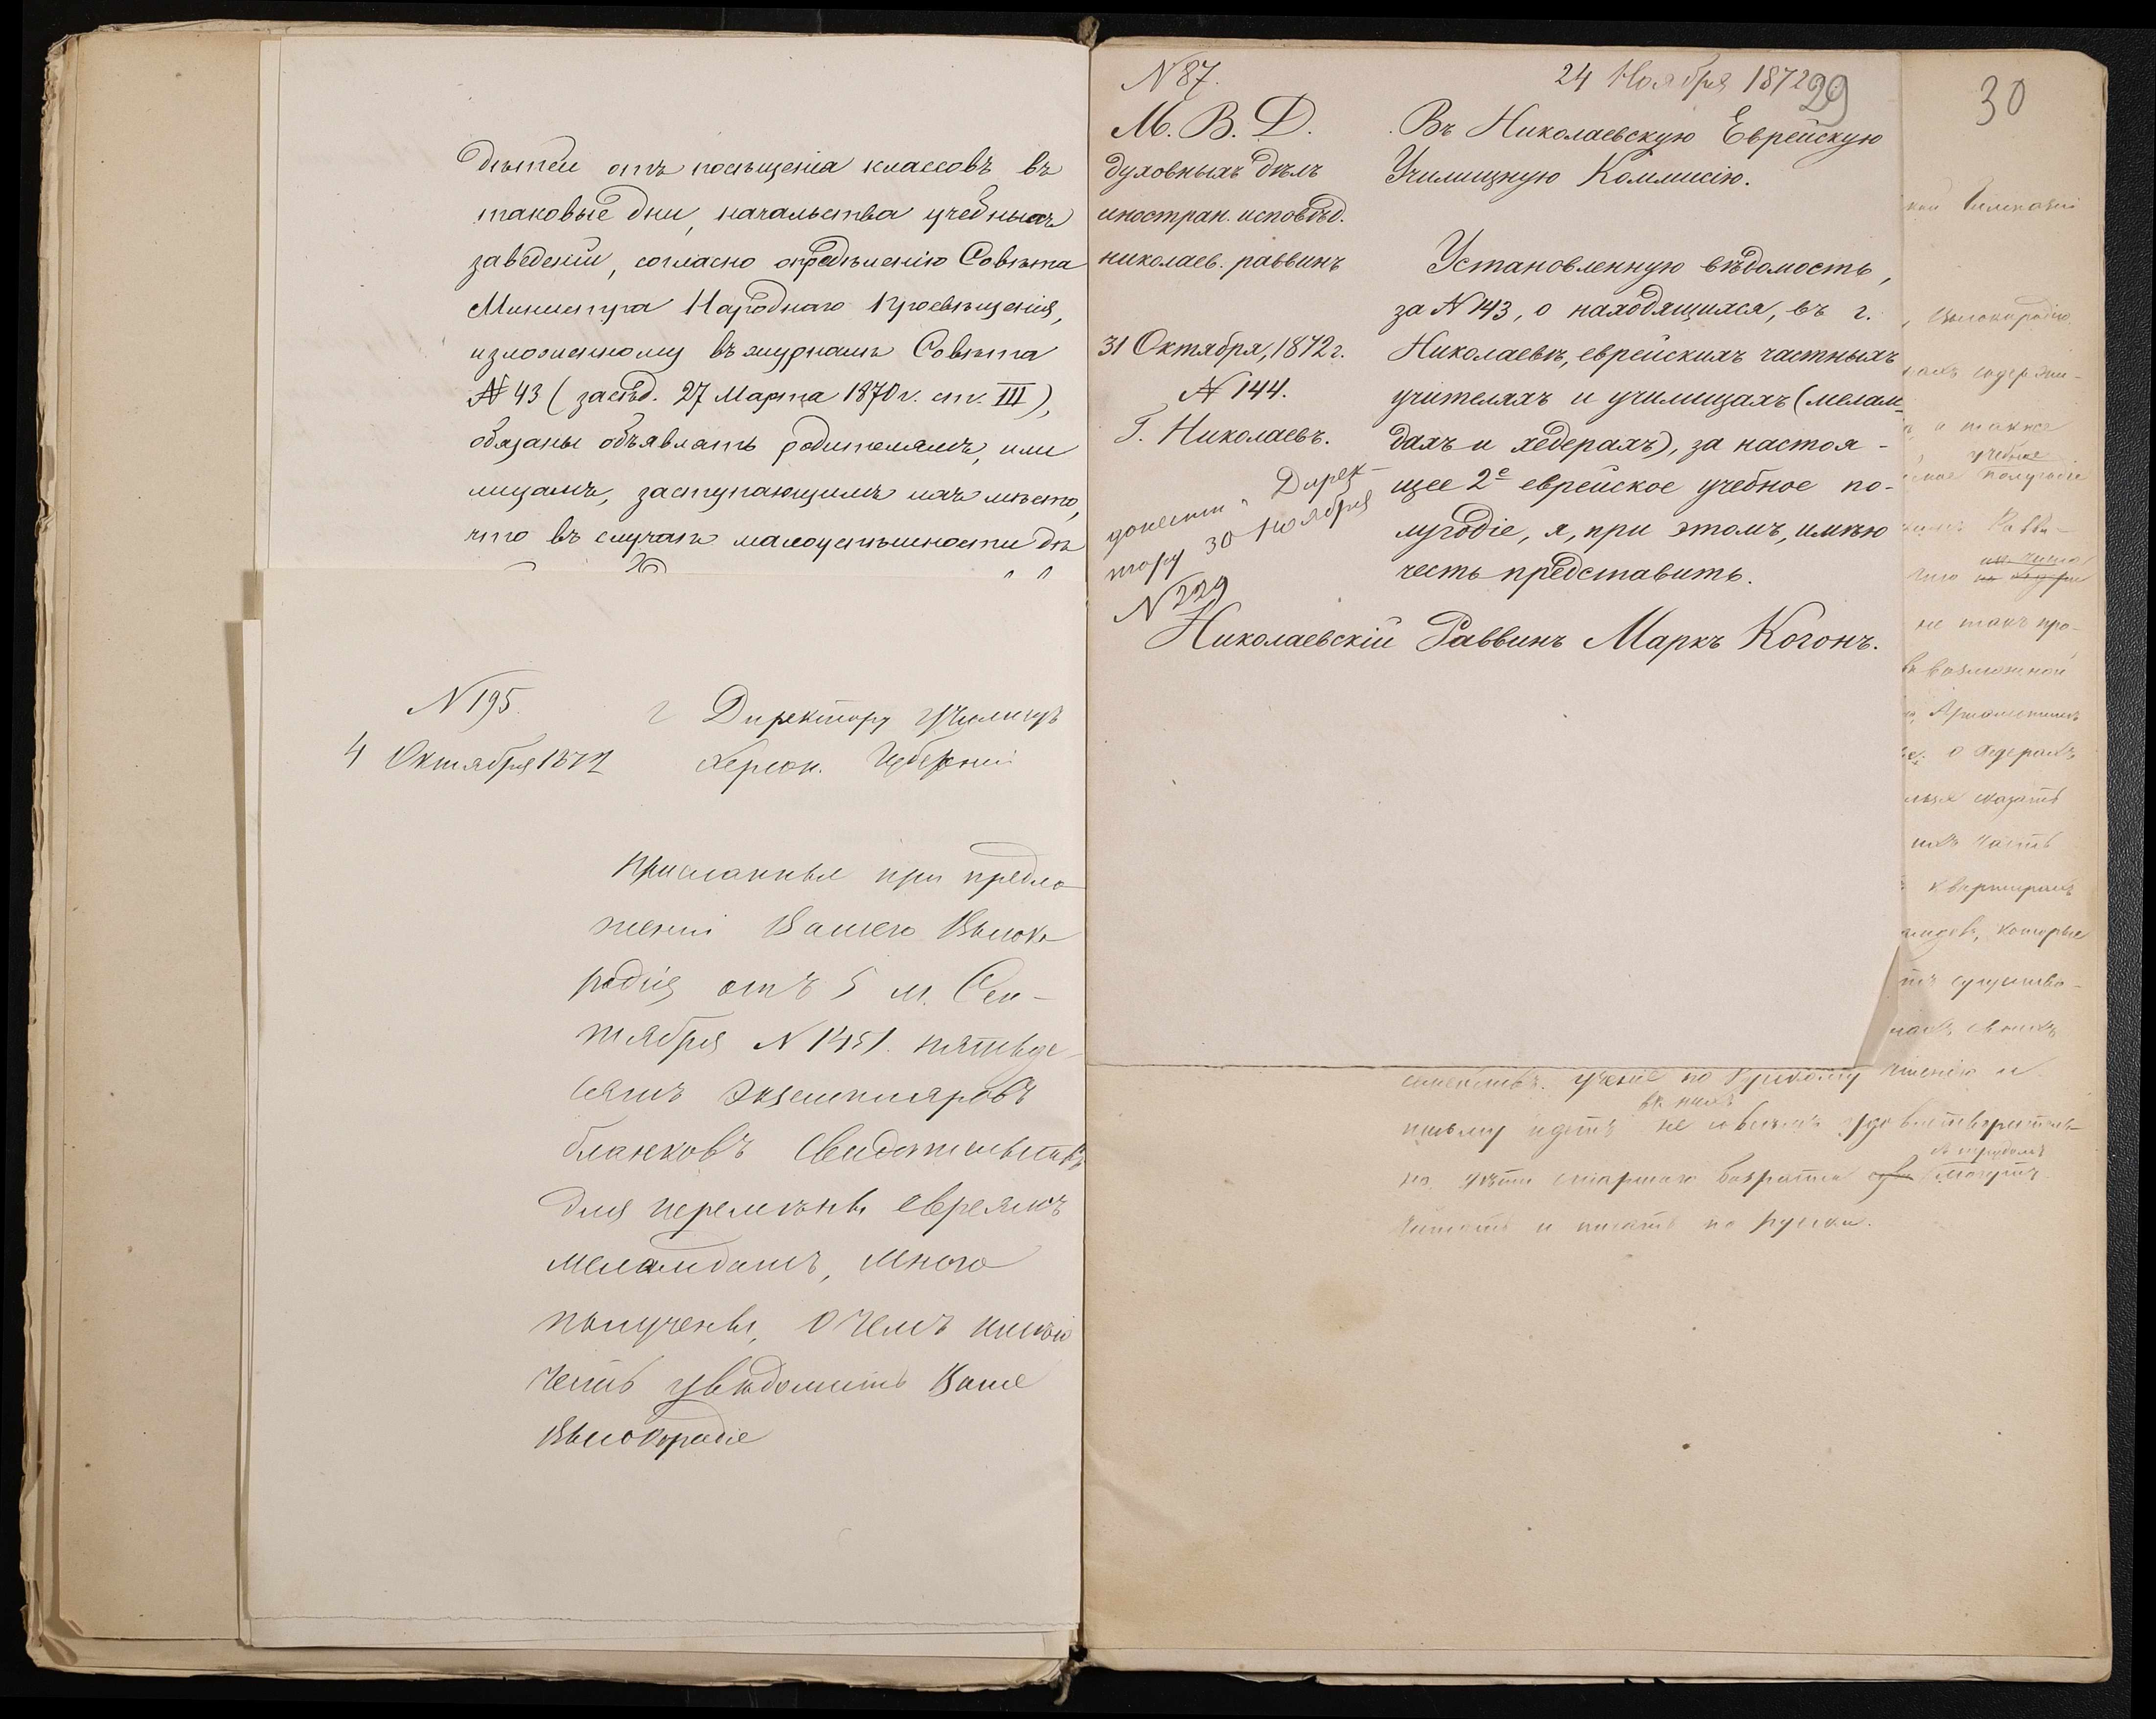 дѣтей отъ посѣщенія классовъ въ
таковые дни, начальства учебныхъ
заведеній, согласно опредѣленію Совѣта
Министра Народнаго Просвѣщенія,
изложенному въ журналѣ Совѣта
№ 43 (засѣд. 27 Марта 1870 г. ст. III),
обязаны объявлять родителямъ, или
лицамъ, заступающимъ ихъ мѣсто,
что въ случаѣ малоуспѣшности дѣ
N 195.
4 Октября 1872
г Директору Училищъ
Херсон. Губерніи
Присланные при предло
женіи Вашего Высоко
родія отъ 5 м. Сен-
тября N 1451. пятьде-
сятъ экземпляровъ
бланковъ свидѣтельствъ
для перемѣны евреямъ
меламдамъ, мною
получены, о чемъ имѣю
честь увѣдомить Ваше
Высокородіе
N 87.
24 Ноября 1872
29
М. В. Д.
духовныхъ дѣлъ
иностран. исповѣд.
николаев. раввинъ
31 Октября, 1872 г.
№ 144.
Г. Николаевъ.
донести г Дирек-
тору 30 Ноября
N 229
Въ Николаевскую Еврейскую
Училищную Коммисію.
Установленную вѣдомость,
за № 143, о находящихся, въ г.
Николаевѣ, еврейскихъ частныхъ
учителяхъ и училищахъ (мелам-
дахъ и хедерахъ), за настоя-
щее 2е еврейское учебное по-
лугодіе, я, при этомъ, имѣю
честь представить.
Николаевскій Раввинъ Маркъ Когонъ.
30
а также
учебное
полугодіе
Равви-
не такъ про-
возможной
о хедерахъ
сказать
ихъ часть
квартирамъ
которые
существо-
ученіе по Русскому чтенію и
въ нихъ
письму идетъ не совсѣмъ удовлетворитель-
съ трудомъ
но дѣти старшаго возраста могутъ
читать и писать по русски.